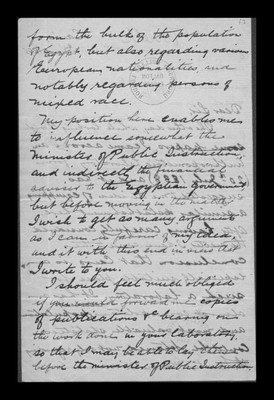 form the bulk of the population
of Egypt, but also regarding various
European nationalities and
notably regarding persons of
mixed race.
My position here enables me
to influence somewhat the
Minister of Public Instruction,
and indirectly the financial
adviser to the Egyptian Government
but before moving in the matter
I wish to get as many arguments
as I can in favor of my idea,
and it is with this end in view that
I write to you.
I should feel much obliged
if you would forward me copies
of publications &c bearing on
the work done in your laboratory,
so that I may be able to lay them
before the minister of Public Instruction